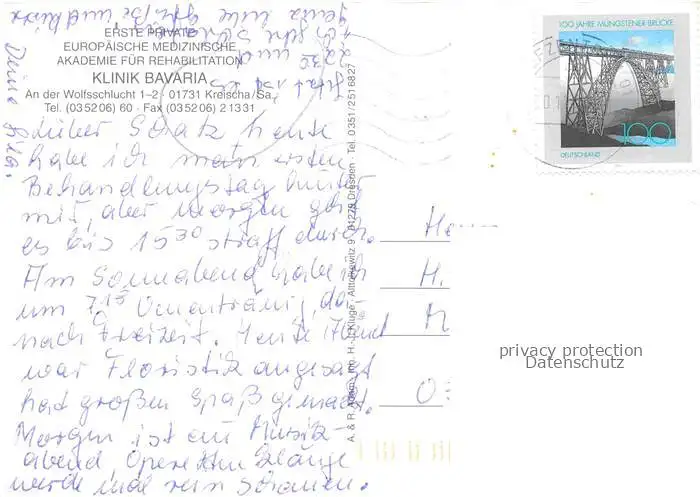 ERSTE PRIVATE
EUROPÄISCHE MEDIZINISCHE
AKADEMIE FÜR REHABILITATION
KLINIK BAVARIA
An der Wolfsschlucht 1–2 · 01731 Kreischa/Sa.
Tel. (035206) 60 · Fax (035206) 21331
Lieber Schatz heute
habe ich mein ersten
Behandlungstag hinter
mir, aber morgen geht
es bis 15³⁰ straff durch.
Am Sonnabend habe ich
um 7¹⁵ , da-
nach Freizeit. Heute Abend
war Floristik angesagt
hat großen Spaß gemacht.
Morgen ist ein Musik-
abend Operetten Klänge
werde mal rein schauen.
Jetzt ist es
22³⁰ und
ich
Deine
A. & R. Adam, Inh. H. J. Kluge · Altlockwitz 9 · 01279 Dresden · Tel. 0351/2516827
100 JAHRE MÜNGSTENER BRÜCKE
100
DEUTSCHLAND
H
H.
M
O
privacy protection
Datenschutz